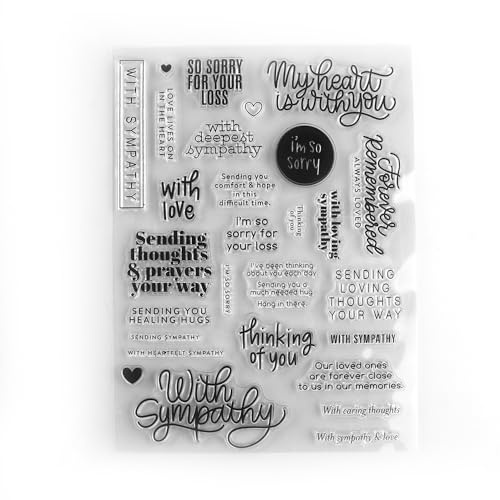 WITH SYMPATHY
LOVE LIVES ON
IN THE HEART
SO SORRY
FOR YOUR
LOSS
My heart
is with you
with
deepest
sympathy
i'm so
sorry
Forever
Remembered
ALWAYS LOVED
with
love
Sending you
comfort & hope
in this
difficult time.
Thinking
of you
with loving
sympathy
I'm so
sorry for
your loss
Sending
thoughts
& prayers
your way
I'M SO SORRY
I've been thinking
about you each day.
Sending you a
much needed hug.
Hang in there.
SENDING
LOVING
THOUGHTS
YOUR WAY
SENDING YOU
HEALING HUGS
SENDING SYMPATHY
WITH HEARTFELT SYMPATHY
thinking
of you
WITH SYMPATHY
Our loved ones
are forever close
to us in our memories.
With
Sympathy
With caring thoughts
With sympathy & love